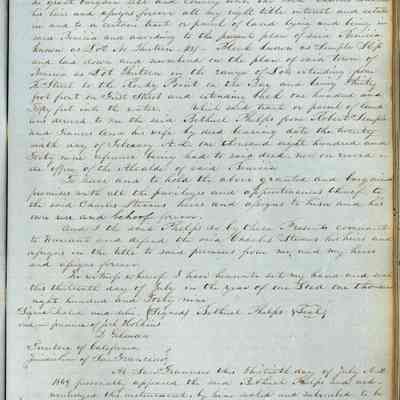 do grant bargain sell and convey unto the said Charles
his heirs and assigns forever all my right title interest and estate
in and to a certain tract or parcel of land lying and being in
said Benicia and according to the present plan of said Benicia
known as Lot No. thirteen Block known as Semple Slip
and laid down and numbered on the plan of said town of
Benicia as Lot thirteen in the range of Lots extending from
H Street to the Rocky Point in the Bay and being thirty
foot front on First Street and extending back one hundred and
fifty feet into the water. Which said tract or parcel of land
was deeded to me the said Bethuel Phelps from Robert Semple
and Frances Ann his wife by deed bearing date the twenty
ninth day of February A.D. one thousand eight hundred and
Forty nine reference being had to said deed now on record in
the office of the Alcalde of said Benicia
To have and to hold the above granted and bargained
premises with all the privileges and appurtenances thereof to
the said Charles Stearns heirs and assigns to them and his
own use and behoof forever.
And I the said Phelps do by these Presents covenant
to Warrant and defend the said Charles Stearns his heirs and
assigns in the title to said premises from me and my heirs
and assigns forever.
In witness whereof I have hereunto set my hand and seal
this thirteenth day of July in the year of our Lord one thousand
eight hundred and Forty nine
Signed sealed and deliv. (Signed) Bethuel Phelps (Seal)
in presence of Jos Hobbins
D Gelman
Territory of California
Jurisdiction of San Francisco
At San Francisco this thirteenth day of July A.D.
1849 personally appeared the said Bethuel Phelps and ack-
nowledged the instrument by him sealed and subscribed to be